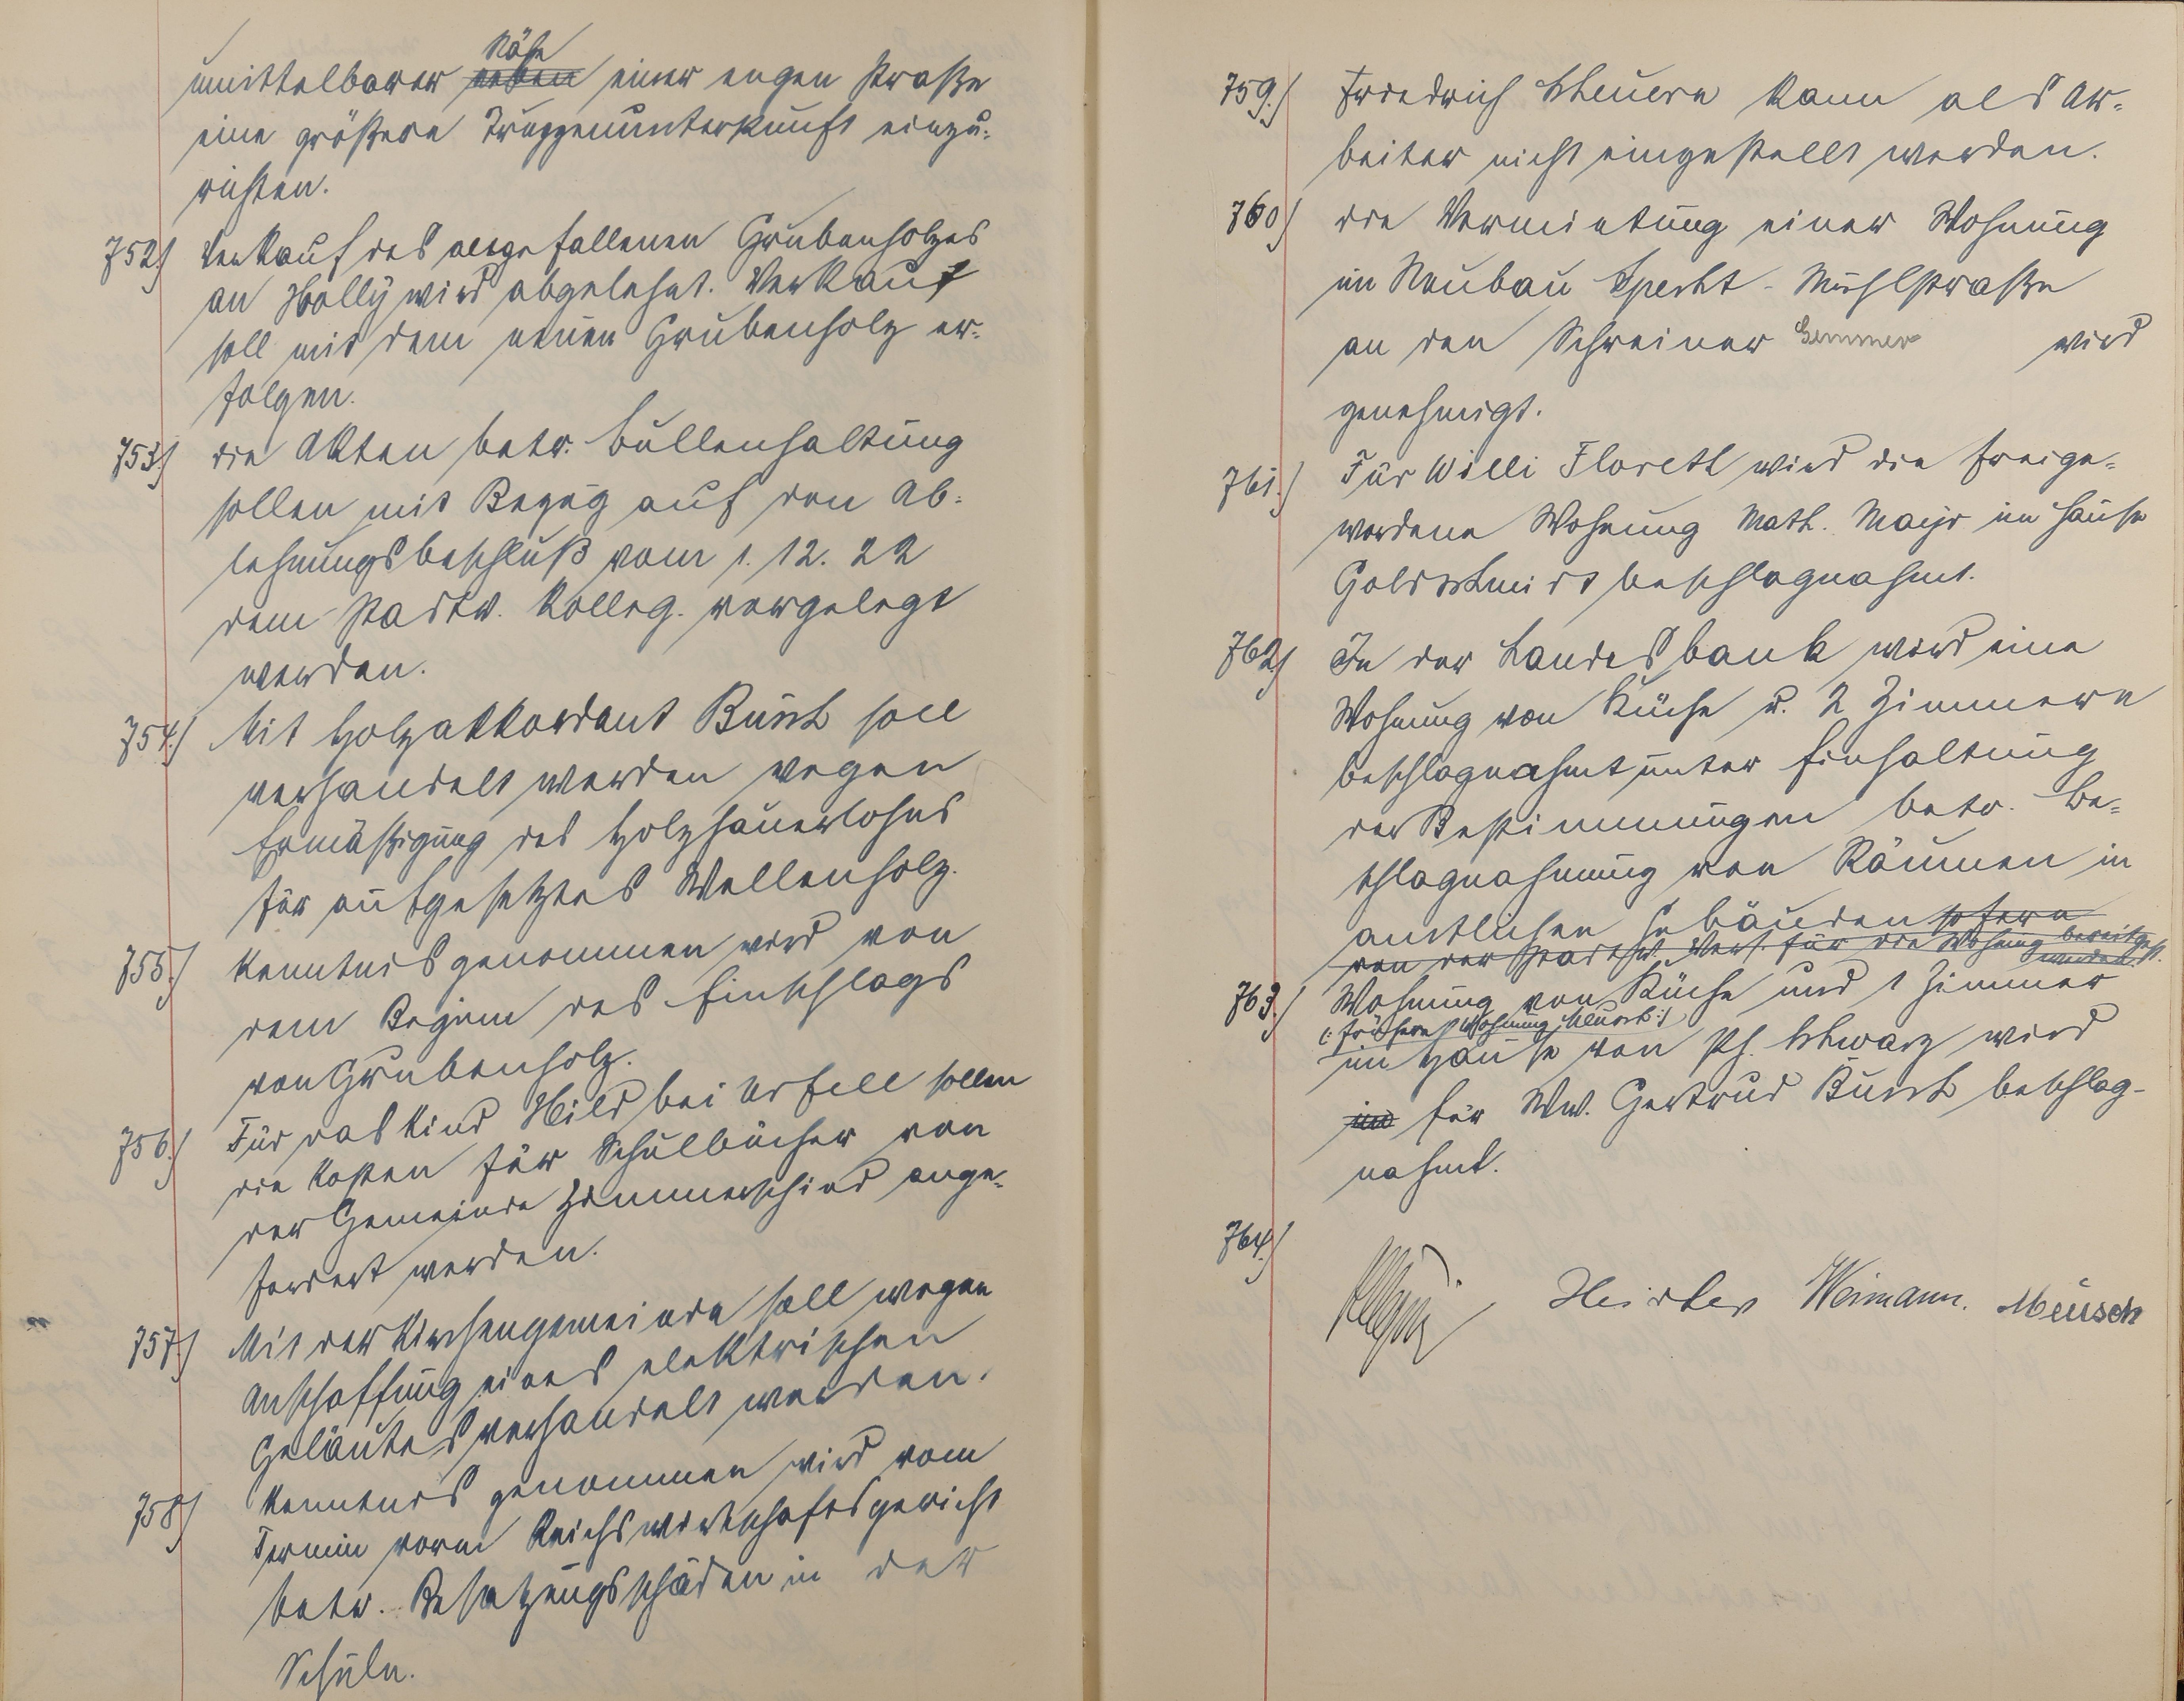 Nähe
unmittelbarer neben einer engen Straße
eine größere Truppenunterkunft einzu-
richten.
752.) Verkauf des ausgefallenen Grubenholzes
an Holly wird abgelehnt. Verkauf
soll mit dem neuen Grubenholz er-
folgen.
753.) Die Akten betr. Bullenhaltung
sollen mit Bezug auf den Ab-
lehnungsbeschluß vom 1. 12. 22
dem Stadtv. Kolleg. vorgelegt
werden.
754.) Mit Holzakkordant Busch soll
verhandelt werden wegen
Ermäßigung des Holzhauerlohns
für aufgesetztes Wellenholz.
755.) Kenntnis genommen wird von
dem Beginn des Einschlags
von Grubenholz.
756.) Für das Kind Hild bei Urfell sollen
die Kosten für Schulbücher von
der Gemeinde Zimmerschied ange-
fordert werden.
757.) Mit der Kirchengemeinde soll wegen
Anschaffung eines elektrischen
Geläutes verhandelt werden.
758.) Kenntnis genommen wird vom
Termin vorm Reichswirtschaftsgericht
betr. Besatzungsschäden in der
Schule.
759.) Friedrich Scheuern kann als Ar-
beiter nicht eingestellt werden.
760.) Die Vermietung einer Wohnung
im Neubau Specht - Mühlstraße
an den Schreiner Gemmer wird
genehmigt.
761.) Für Willi Floreth wird die freige-
wordene Wohnung Math. Mayr im Hause
Goldschmidt beschlagnahmt.
762.) In der Landesbank wird eine
Wohnung von Küche u. 2 Zimmern
beschlagnahmt unter Einhaltung
der Bestimmungen betr. Be-
schlagnahmung von Räumen in
amtlichen Gebäuden sofern
von der Stadtv. Vers. für die Wohnung bereitgest.
werden.
763.) Wohnung von Küche und 1 Zimmer
(: frühere Wohnung Meusch :)
im Hause von Ph. Schwarz wird
für Ww. Gertrud Busch beschlag-
nahmt.
764.)
Weimann. Meusch